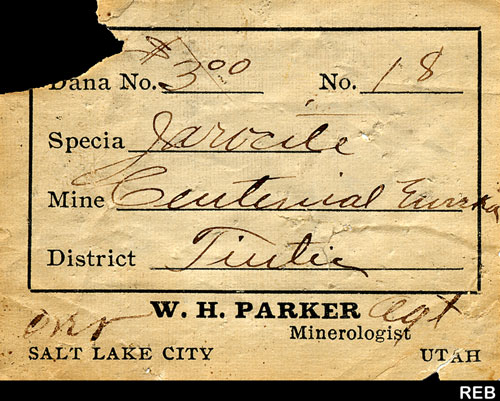 Dana No. $3.00 No. 18
Specia Jarocite
Mine Centenial Eureka
District Tintic
W. H. PARKER Agt
over Minerologist
SALT LAKE CITY UTAH
REB